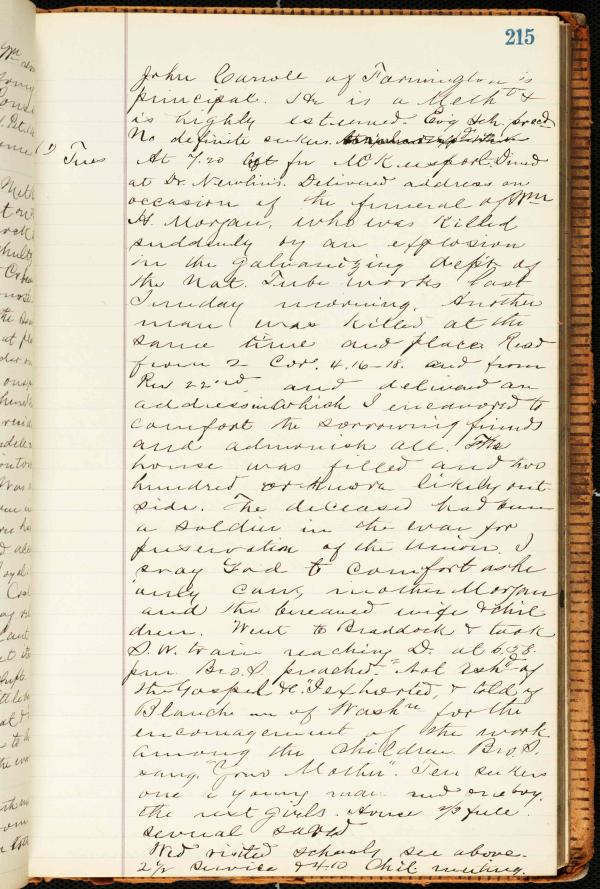 215
John Carroll of Farmington is
principal. He is a Methdt &
is highly esteemed Evg Sch preed
No definite seekers.
Tues At 7.20 left for McKeesport. Dined
at Dr. Newlin's. Delivered address on
occasion of the funeral of Wm
H. Morgan, who was killed
suddenly by an explosion
in the Galvanizing dep't of
the Nat. Tube works last
Tuesday morning. Another
man was killed at the
same time and place. Read
from 2 Cor. 4.16-18. and from
Rev 22nd and delivered an
address in which I endeavored to
comfort the sorrowing friends
and admonish all. The
house was filled and two
hundred or more likely out-
side. The deceased had been
a soldier in the war for
preservation of the Union. I
pray God to comfort as he
only can, mother Morgan
and the bereaved wife & chil
dren. Went to Braddock & took
S.W. train reaching D. at 6.58
pm Bro. S. preached. "Not ashd of
the Gospel &c." I exhorted, & told of
Blanche of Washn for the
encouragement of the work
among the children. Bro. S.
sang, "Your Mother". Ten seekers
one a young man and one boy.
the rest girls. House 2/3 full.
several saved
Wed visited schools see above.
2 1/2 service & 4.10 Chil meeting.